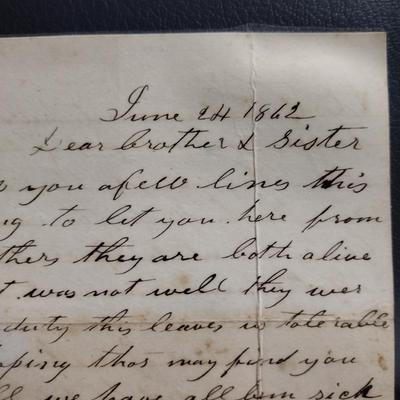 June 24 1862
Dear brother & Sister
you afew lines this
to let you here from
thers they are both alive
t was not well they wer
duty this leaves us tolerable
oping thos may find you
we have all bun sick